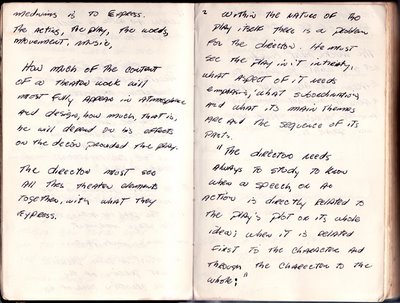 mediums is to Express.
The acting, the play, the words
movement, music,
How much of the content
of a theater work will
most fully appear in atmosphere
and design, how much, that is,
he will depend on his effects
on the decòr provided the play.
The director must see
All thes theater elements
Together, with what they
Express.
2 Within the nature of the
play itself there is a problem
for the director. He must
see the play in it intirety,
what aspect of it needs
emphasis, what subordination
and what its main themes
are and the sequence of its
parts.
"The director needs
Always to study to know
when a speech or an
action is directly related to
the play's plot or its whole
idea; when it is related
First to the character and
through the character to the
whole;"